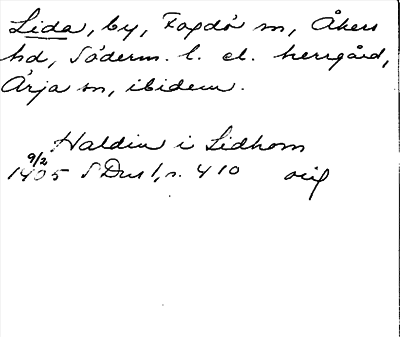 Lida, by, Fogdö sn, Åkers
hd, Söderm. l. el. herrgård,
Ärja sn, ibidem.
Haldin i Lidhom
9/2
1405 SD ns 1, s. 410 orig